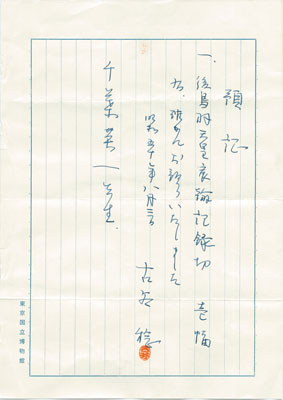 預 記
一、後鳥羽天皇宸翰記録切 壱幅
右、確かにお預りいたしました
昭和五十年八月三日
古谷 稔
千葉 一 先生
東京国立博物館